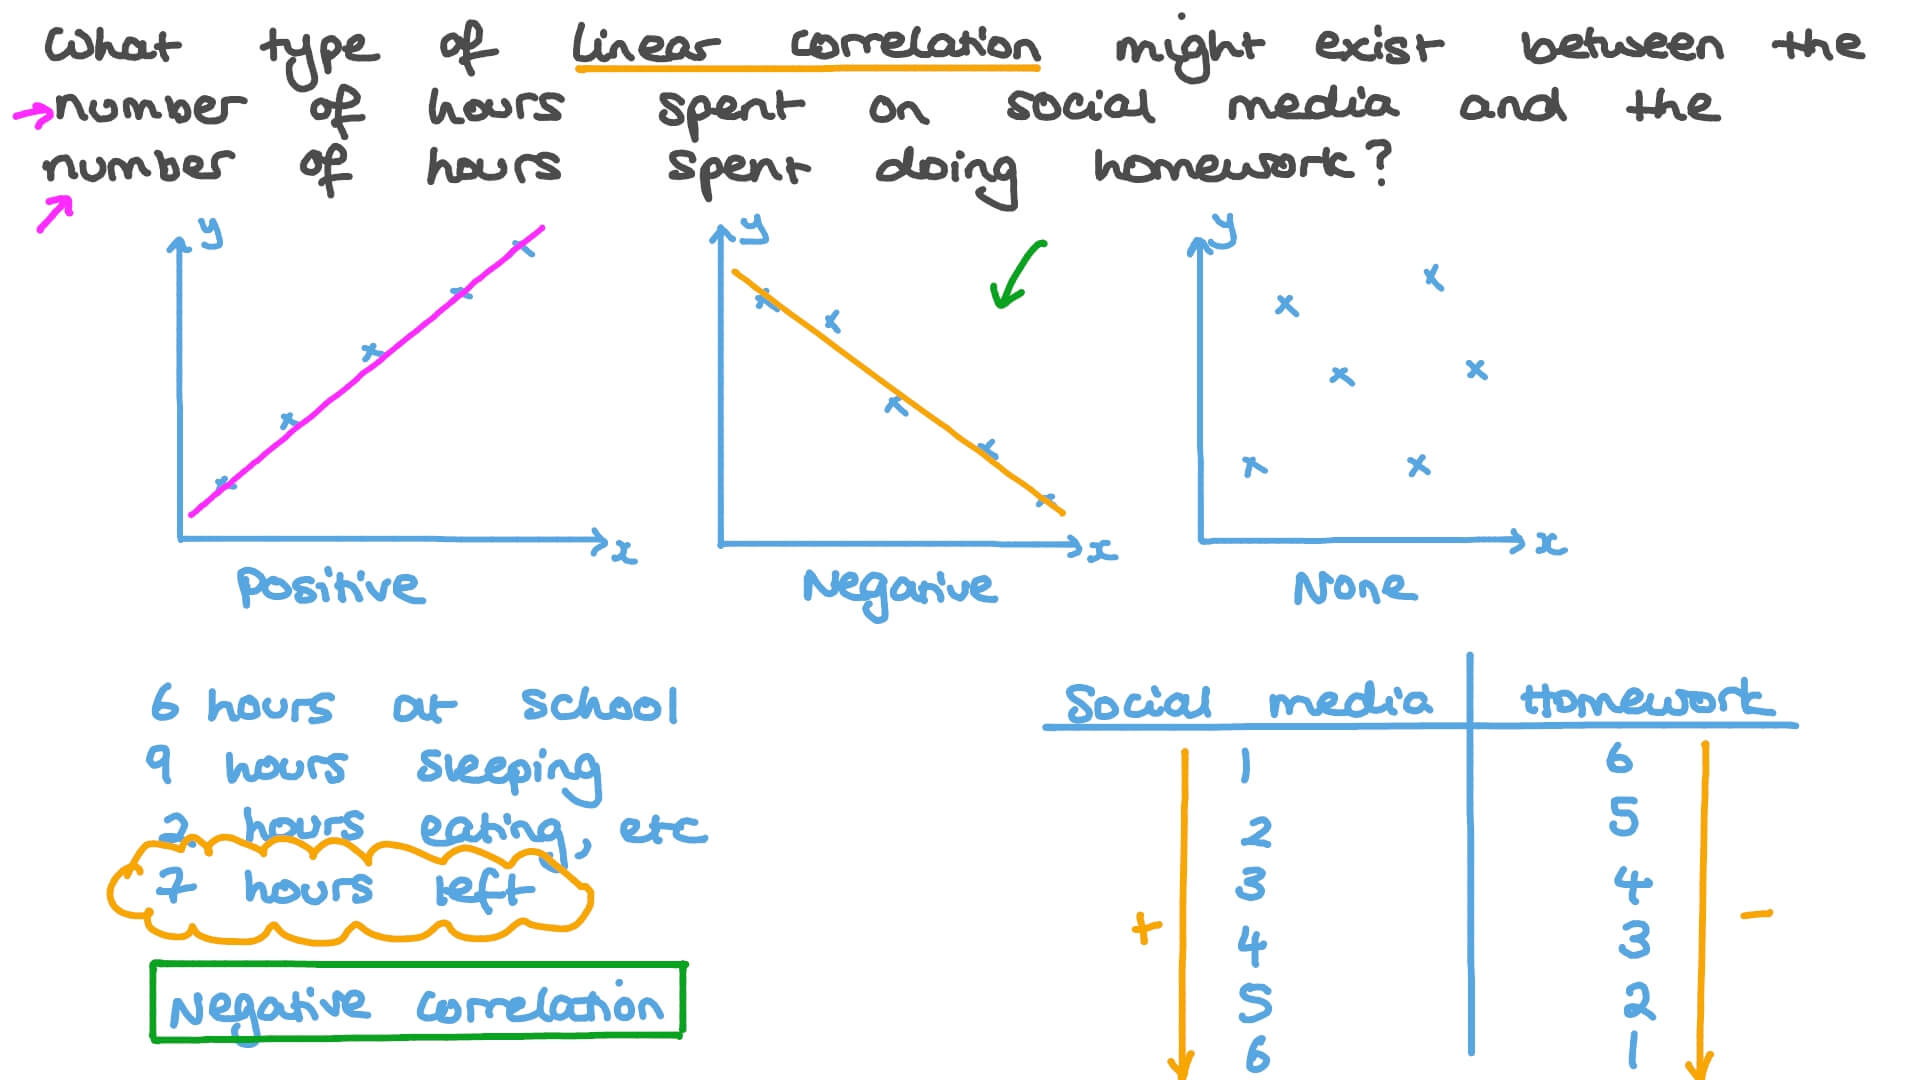 What type of linear correlation might exist between the
number of hours spent on social media and the
number of hours spent doing homework?
y
x
Positive
y
x
Negative
y
x
None
6 hours at school
9 hours sleeping
2 hours eating, etc
7 hours left
Negative correlation
Social media Homework
1 6
2 5
3 4
+ 4 3 -
5 2
6 1